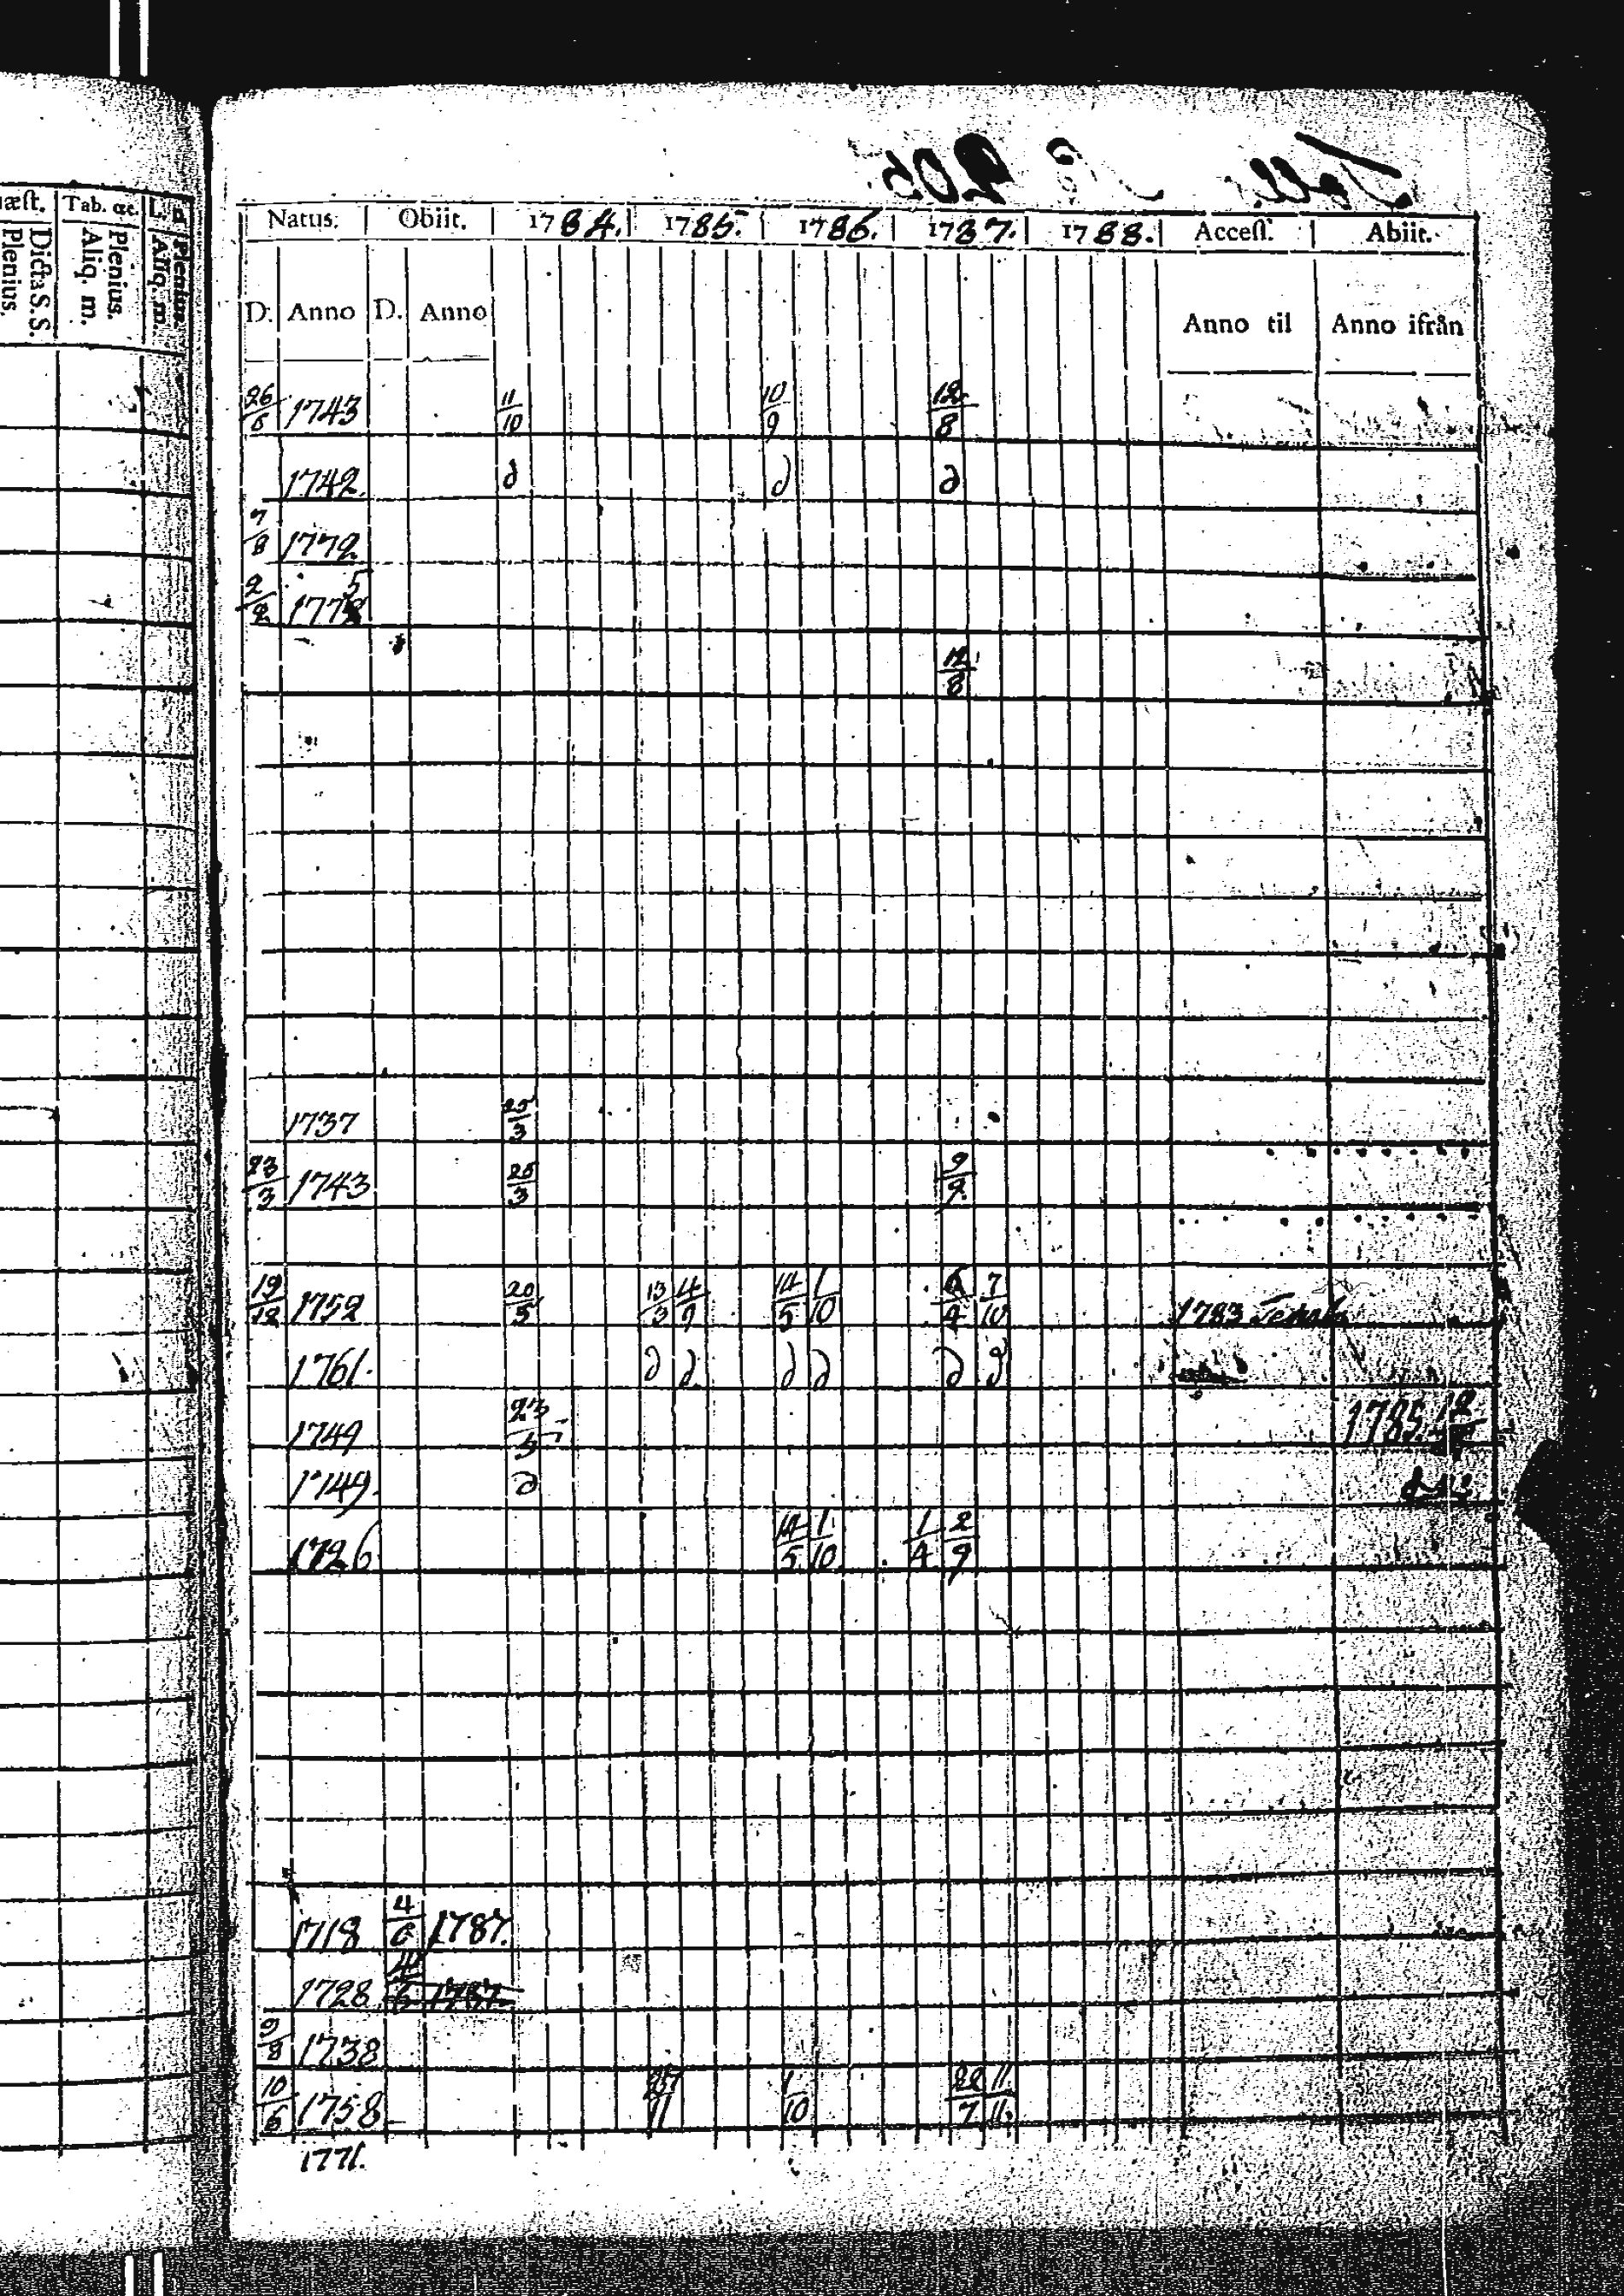 Foll. 205.
æst. Tab. œc.
Dicta S. S.
Plenius.
Plenius.
Aliq. m.
Plenius.
Aliq. m.
Natus. Obiit. 1784. 1785. 1786. 1787. 1788. Access. Abiit.
D. Anno D. Anno Anno til Anno ifrån
26/6 1743 11/10 10/9 12/8
1742. d d d
7/8 1772
2/2 1775
12/8
1737 25/3
23/3 1743 25/3 9/9
19/12 1752 20/5 13/3 4/9 14/5 1/10 6/4 7/10 1783
1761. d d d d d d
1749 23/5 1785.
1749. d
1726 14/5 1/10 1/4 2/9
1718 4/6 1787.
1728. 4/6 1787
9/8 1738
10/5 1758 27/11 1/10 22/7 11/11.
1771.